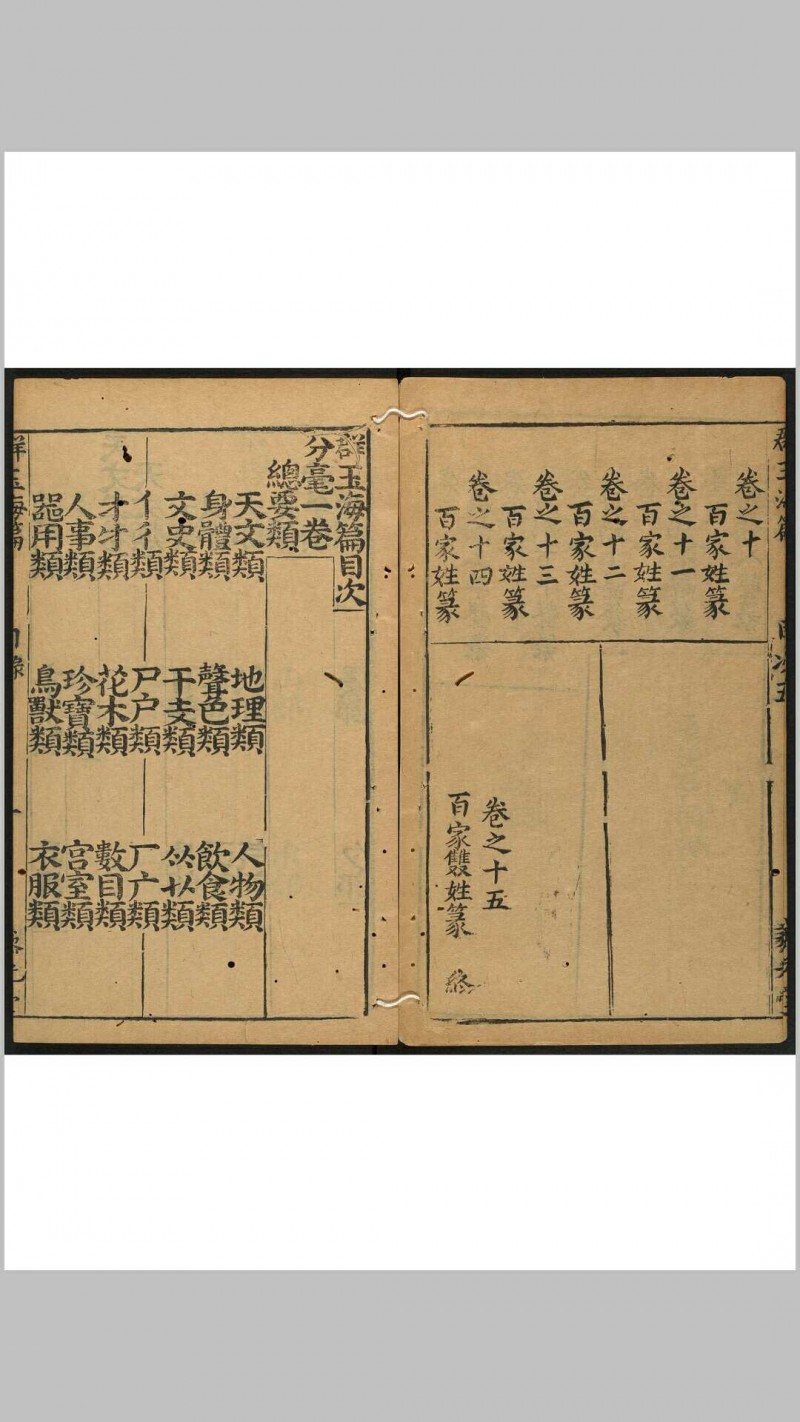 卷之十
百家姓篆
卷之十一
百家姓篆
卷之十二
百家姓篆
卷之十三
百家姓篆
卷之十四
百家姓篆
卷之十五
百家雙姓篆 終
群玉海篇目次
分毫一卷
總要類
天文類 地理類 人物類
身體類 聲色類 飲食類
文史類 干支類
亻彳類 尸户類 厂广類
才牙類 花木類 數目類
人事類 珍寶類 宫室類
器用類 鳥獸類 衣服類
群玉海篇